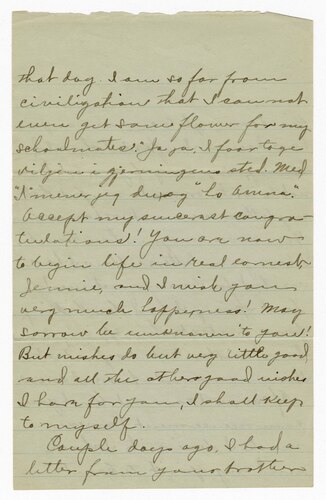 that day. I am so far from
civilization that I can not
even get some flower for my
schoolmates." Ja ja, I faar tage
viljen i gjerningens sted. Med
"I" mener jeg du og "Lo Anna".
Accept my sincerest congra-
tulations! You are now
to begin life in real earnest
Jennie, and I wish you
very much happeness! May
sorrow be unknown to you!
But wishes do but very little good,
and all the other good wishes
I have for you, I shall keep
to myself.
Couple days ago, I had a
letter from your brother